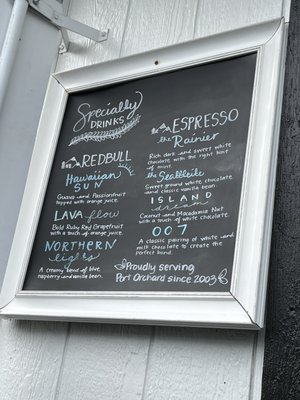 Specialty
DRINKS
REDBULL
Hawaiian
SUN
Guava and Passionfruit
topped with orange juice.
LAVA flow
Bold Ruby Red Grapefruit
with a touch of orange juice.
NORTHERN
lights
A creamy blend of blue
raspberry and vanilla bean.
ESPRESSO
the Rainier
Rich dark and sweet white
chocolate with the right hint
of mint.
the Seattleite
Sweet ground white chocolate
and classic vanilla bean.
ISLAND
dream
Coconut and Macadamia Nut
with a touch of white chocolate.
007
A classic pairing of white and
milk chocolate to create the
perfect blend.
Proudly serving
Port Orchard since 2003